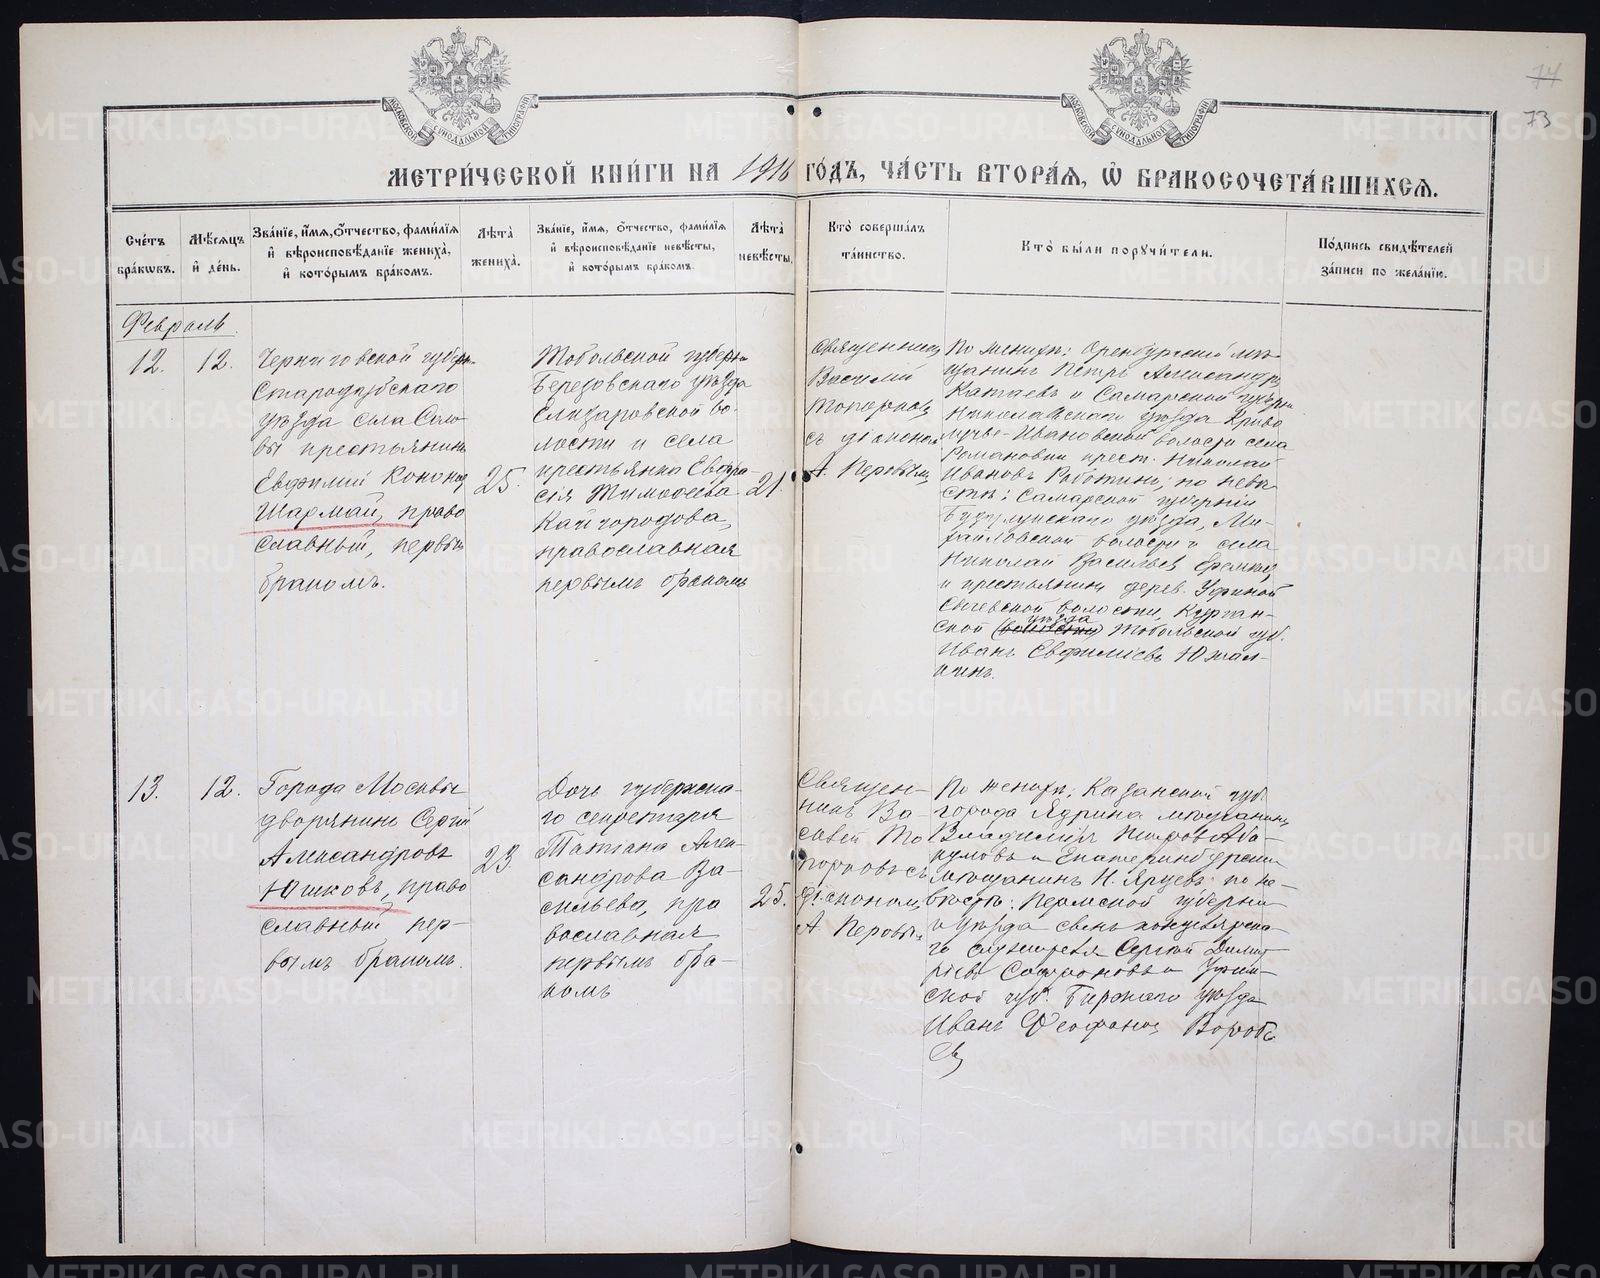 74
73
МЕТРИ́ЧЕСКОЙ КНИ́ГИ НА 1916 ГО́ДЪ, ЧА́СТЬ ВТОРА́Я, Ѡ БРАКОСОЧЕТА́ВШИХСЯ.
Сче́тъ бра́ковъ.
Мѣ́сяцъ и де́нь.
Зва́нїе, и́мя, ѻ́тчество, фами́лїя и вѣроисповѣ́данїе жениха̀, и кото́рымъ бра́комъ.
Лѣта̀ жениха̀.
Зва́нїе, и́мя, ѻ́тчество, фами́лїя и вѣроисповѣ́данїе невѣ́сты, и кото́рымъ бра́комъ.
Лѣта̀ невѣ́сты.
Кто̀ соверша́лъ та́инство.
Кто̀ бы́ли поручи́тели.
По́дпись свидѣ́телей за́писи по жела́нїю.
Февраль.
12.
12.
Черниговской губерн.
Стародубскаго
уѣзда села
крестьянинъ
Евфимій Кононов
Шармай, право
славный, первым
бракомъ.
25.
Тобольской губерн
Березовскаго уѣзда
Елизаровской во-
лости и села
крестьянка Евфра-
сія Тимофеева
Кайгородова,
православная
первымъ бракомъ
21.
Священник
Василий
Топорков
съ діаконом
А. Первым
По женихѣ: Оренбургский мѣ-
щанинъ Петръ Александр.
Катаевъ и Самарской губерн
Николаевскаго уѣзда Криво
лучье-Ивановской волости села
Романовки крест. Николай
Ивановъ Работинъ; по невѣ
стѣ: Самарской губерніи
Бузулукскаго уѣзда, Ми-
хайловской волости и села
Николай Васильев
и крестьянин дерев.
волости, Курган-
ской (волости) уѣзда Тобольской губ.
Иванъ Евфиміевъ Южал-
кинъ.
13.
12.
Города Москвы
дворянинъ Сергѣй
Александровъ
Юшковъ, право
славный пер-
вымъ бракомъ.
23
Дочь губернска-
го секретаря
Татіана Алек-
сандрова Ва-
сильева, пра
вославная
первымъ бра-
комъ
25.
Священ-
никъ Ва-
силій То
порковъ съ
діаконом
А Первым
По женихѣ: Казанской губ.
города Ядрина мѣщанин
Владиміръ Аба-
кумовъ и Екатеринбургскій
мѣщанинъ Н. Ярцевъ; по не-
вѣстѣ: Пермской губерніи
и уѣзда сынъ канцелярска-
го служителя Сергѣй Дмит
ріевъ Сафоновъ и Уфим-
ской губ. Бирскаго уѣзда
Иванъ Феофанов Воробь
ев
METRIKI.GASO-URAL.RU